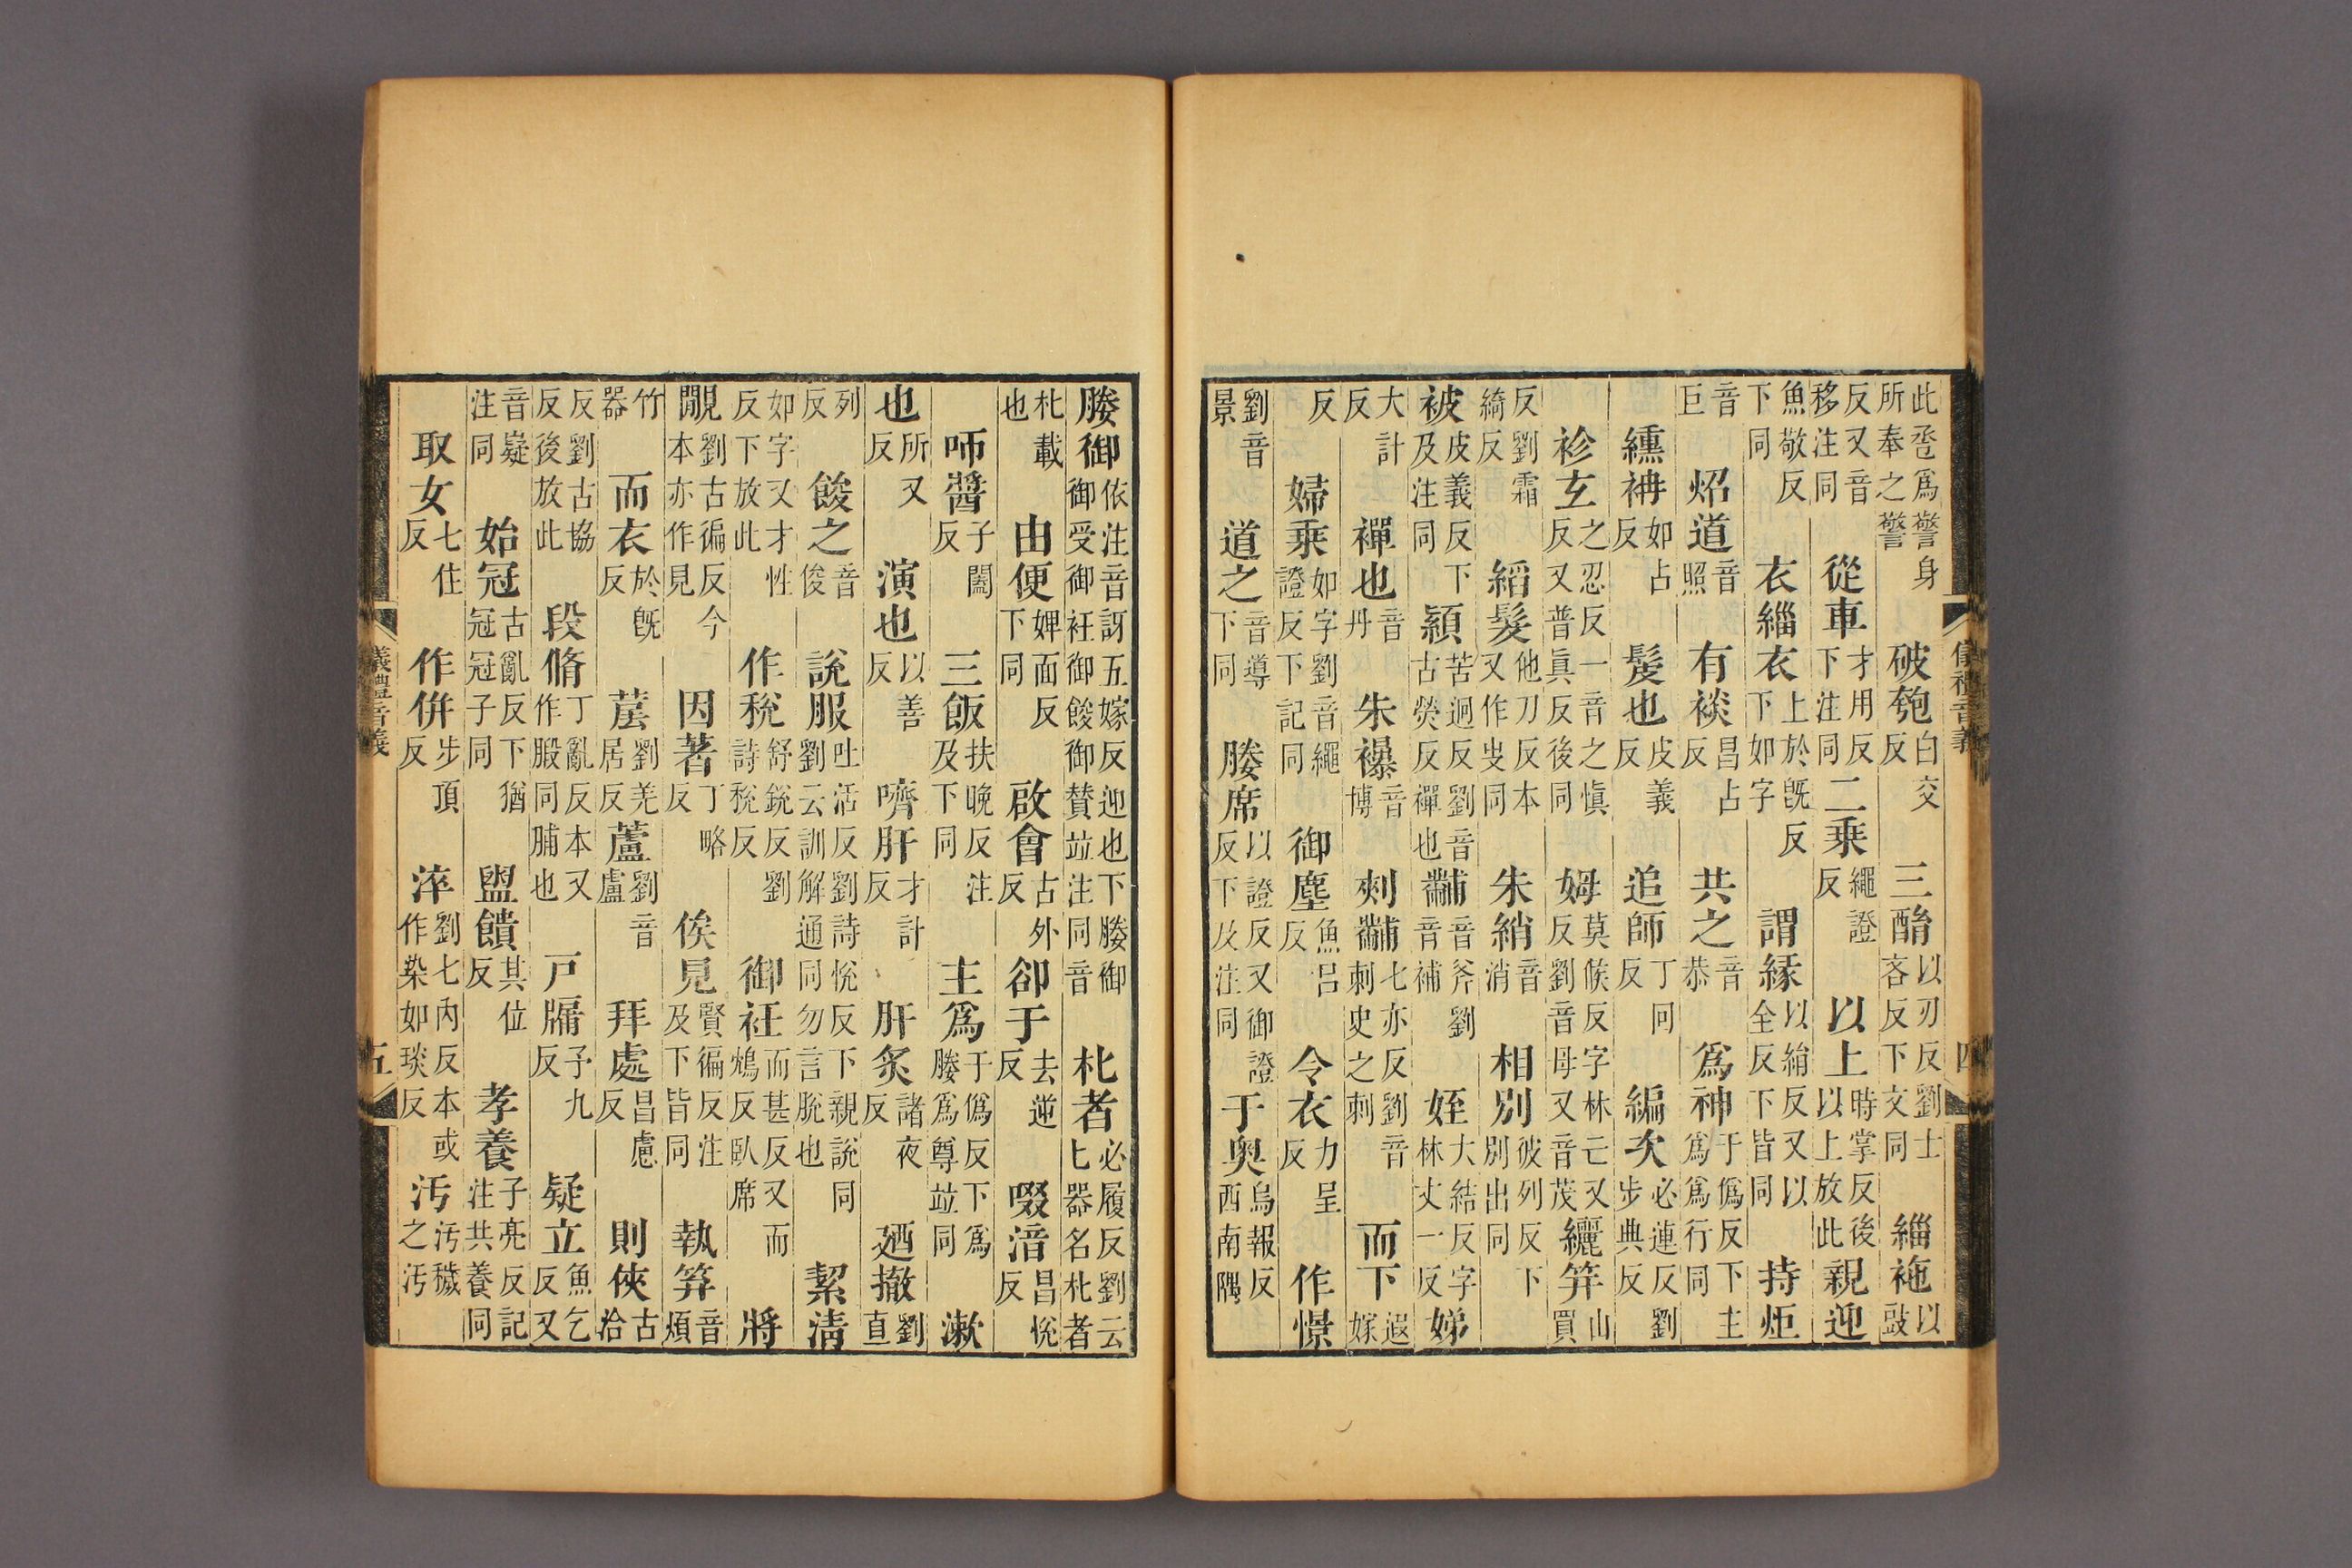 儀禮音義 四
此丞爲警身所奉之警 破匏白交反 三酳以刃反劉士吝反下文同 緇袘以豉
反又音移注同 從車才用反下注同 二乘繩證反 以上時掌反後以上放此 親迎
魚敬反下同 衣緇衣上於旣反下如字 謂緣以絹反又以全反下皆同 持炬
音巨 炤道音照 有裧昌占反 共之音恭 爲神于僞反下主爲爲行同
纁袡如占反 髲也皮義反 追師丁回反 編次必連反劉步典反
袗玄之忍反一音之愼反又普眞反後同 姆莫候反字林亡又反劉音母又音茂 纚笄山買
反劉霜綺反 縚髮他刀反本又作㕜同 朱綃音消 相別彼列反下別出同
被皮義反下及注同 潁苦迥反劉音古熒反襌也 黼音斧劉音補 姪大結反字林丈一反 娣
大計反 襌也音丹 朱襮音博 刺黼七亦反劉音刺史之刺 而下遐嫁
反 婦乘如字劉音繩證反下記同 御塵魚呂反 令衣力呈反 作憬
劉音景 道之音導下同 媵席以證反又御證反下及注同 于奥烏報反西南隅
媵御依注音訝五嫁反迎也下媵御御受御衽御餕御贊竝注同音 朼者必履反劉云匕器名朼者
朼載也 由便婢面反下同 啟會古外反 卻于去逆反 啜湆昌悅反
咂醬子闔反 三飯扶晚反注及下同 主爲于僞反下爲媵爲尊竝同 漱
也所又反 演也以善反 嚌肝才計反 肝炙諸夜反 廼撤劉直
列反 餕之音俊 說服吐活反劉詩悅反下親說同劉云訓解通同勿言脫也 絜清
如字又才性反下放此 作稅舒銳反劉詩稅反 御衽而甚反又而鴆反臥席 將
見劉古徧反今閒本亦作見 因著丁略反 俟見賢徧反注及下皆同 執笲音煩
竹器 而衣於旣反 劉羌居反 蘆劉音盧 拜處昌慮反 則俠古洽
反劉古協反後放此 段脩丁亂反本又作腶同脯也 戸牖子九反 疑立魚乞反又
音嶷注同 始冠古亂反下猶冠冠子同 盥饋其位反 孝養子亮反記注共養同
取女七住反 作併步頂反 淬劉七內反本或作染如琰反 汚汚穢之汚
儀禮音義 五